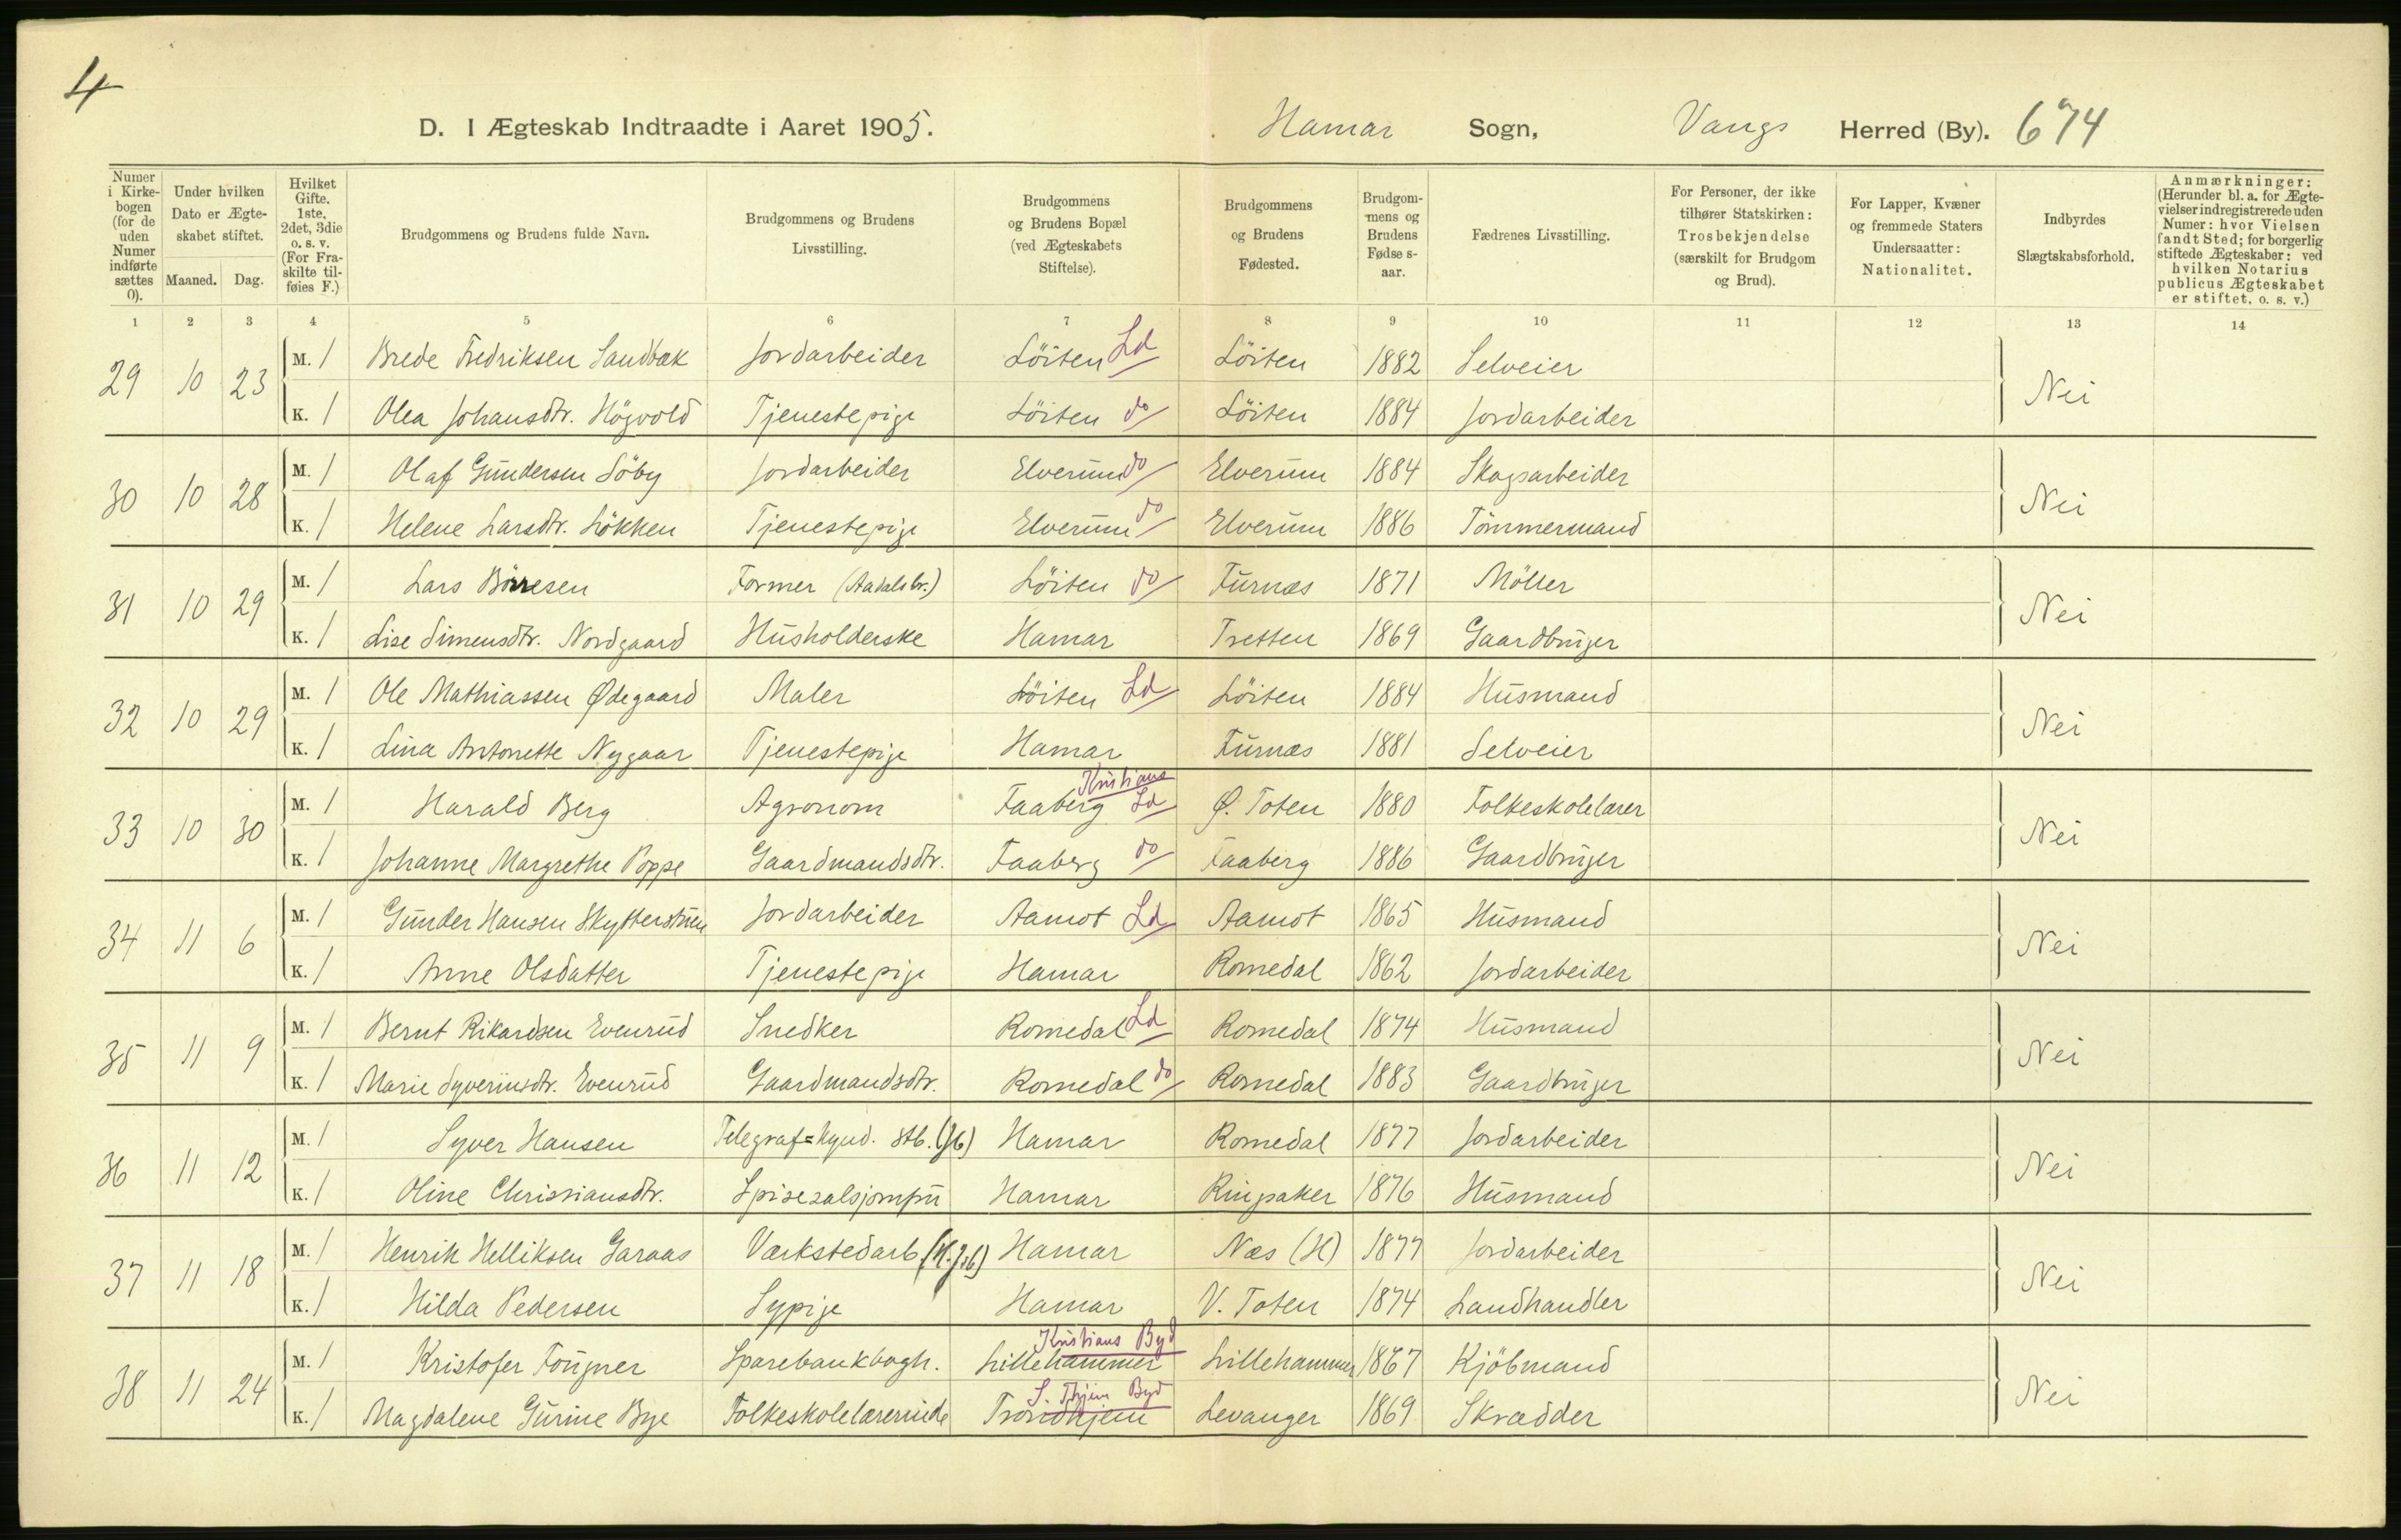 4
D. I Ægteskab Indtraadte i Aaret 1905. Hamar Sogn, Vangs Herred (By). 674
Numer i Kirkebogen (for de uden Numer indførte sættes 0).
Under hvilken Dato er Ægteskabet stiftet.
Maaned. Dag.
Hvilket Gifte. 1ste, 2det, 3die o. s. v. (For Fraskilte tilføies F.)
Brudgommens og Brudens fulde Navn.
Brudgommens og Brudens Livsstilling.
Brudgommens og Brudens Bopæl (ved Ægteskabets Stiftelse).
Brudgommens og Brudens Fødested.
Brudgommens og Brudens Fødselsaar.
Fædrenes Livsstilling.
For Personer, der ikke tilhører Statskirken: Trosbekjendelse (særskilt for Brudgom og Brud).
For Lapper, Kvæner og fremmede Staters Undersaatter: Nationalitet.
Indbyrdes Slægtskabsforhold.
Anmærkninger: (Herunder bl. a. for Ægtevielser indregistrerede uden Numer: hvor Vielsen fandt Sted; for borgerlig stiftede Ægteskaber: ved hvilken Notarius publicus Ægteskabet er stiftet, o. s. v.)
1 2 3 4 5 6 7 8 9 10 11 12 13 14
29 10 23 M. 1 Brede Fredriksen Sandbæk Jordarbeider Löiten Ld Löiten 1882 Selveier Nei
K. 1 Olea Johansdtr. Högvold Tjenestepige Löiten do Löiten 1884 Jordarbeider
30 10 28 M. 1 Olaf Gundersen Söby Jordarbeider Elverum do Elverum 1884 Skogsarbeider Nei
K. 1 Helene Larsdtr. Lökken Tjenestepige Elverum do Elverum 1886 Tömmermand
31 10 29 M. 1 Lars Börresen Former (Aadalsbr.) Löiten do Furnæs 1871 Möller Nei
K. 1 Lise Simensdtr. Nordgaard Husholderske Hamar Tretten 1869 Gaardbruger
32 10 29 M. 1 Ole Mathiassen Ødegaard Maler Löiten Ld Löiten 1884 Husmand Nei
K. 1 Lina Antonette Nygaar Tjenestepige Hamar Furnæs 1881 Selveier
33 10 30 M. 1 Harald Berg Agronom Faaberg Kristians Ld Ø. Toten 1880 Folkeskolelærer Nei
K. 1 Johanne Margrethe Poppe Gaardmandsdtr. Faaberg do Faaberg 1886 Gaardbruger
34 11 6 M. 1 Gunder Hansen Skytterstuen Jordarbeider Aamot Ld Aamot 1865 Husmand Nei
K. 1 Anne Olsdatter Tjenestepige Hamar Romedal 1862 Jordarbeider
35 11 9 M. 1 Bernt Rikardsen Evenrud Snedker Romedal Ld Romedal 1874 Husmand Nei
K. 1 Marie Syverinsdtr. Evenrud Gaardmandsdtr. Romedal do Romedal 1883 Gaardbruger
36 11 12 M. 1 Syver Hansen Hamar Romedal 1877 Jordarbeider Nei
K. 1 Oline Chrissiansdtr. Spisesalsjomfru Hamar Ringsaker 1876 Husmand
37 11 18 M. 1 Henrik Helliksen Garaas Værkstedarb (H. Jsb) Hamar Næs (H) 1877 Jordarbeider Nei
K. 1 Hilda Pedersen Sypige Hamar V. Toten 1874 Landhandler
38 11 24 M. 1 Kristofer Fougner Sparebankbogh. Lillehammer Kristians Byd Lillehammer 1867 Kjöbmand Nei
K. 1 Magdalene Gurine Bye Folkeskolelærerinde Trondhjem S. Thjem Byd Levanger 1869 Skrædder